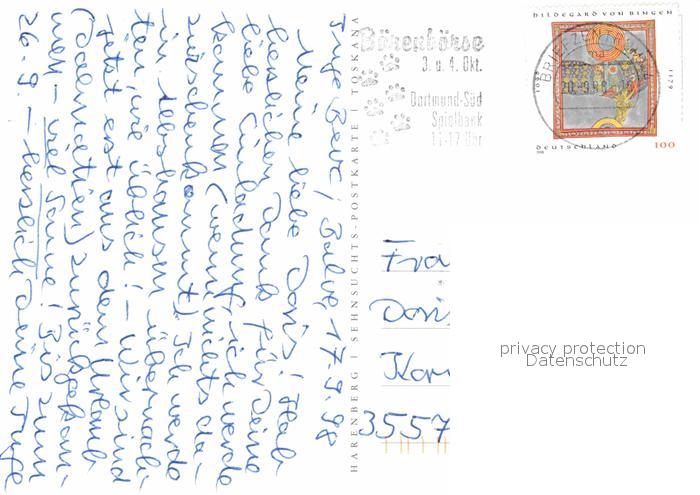 Inge Beck, Balve, 17.9.98
Meine liebe Doris! Hab
herzlichen Dank für Deine
liebe Einladung - ich werde
kommen (wenn nichts da-
zwischenkommt). Ich werde
in Iserlohn übernach-
ten (wie üblich! - Wir sind
jetzt erst aus dem Urlaub
(Dalmatien) zurückgekom-
men - viel Sonne! Bis zum
26.9 - herzlich Deine Inge
HARENBERG | SEHNSUCHTS-POSTKARTE | TOSKANA
Bärenbörse
3. u. 4. Okt.
Dortmund-Süd
Spielbank
11-17 Uhr
HILDEGARD VON BINGEN
1098
1179
BRIEFZEN
DEUTSCHLAND
100
1998
Frau
Doris
3557
privacy protection
Datenschutz